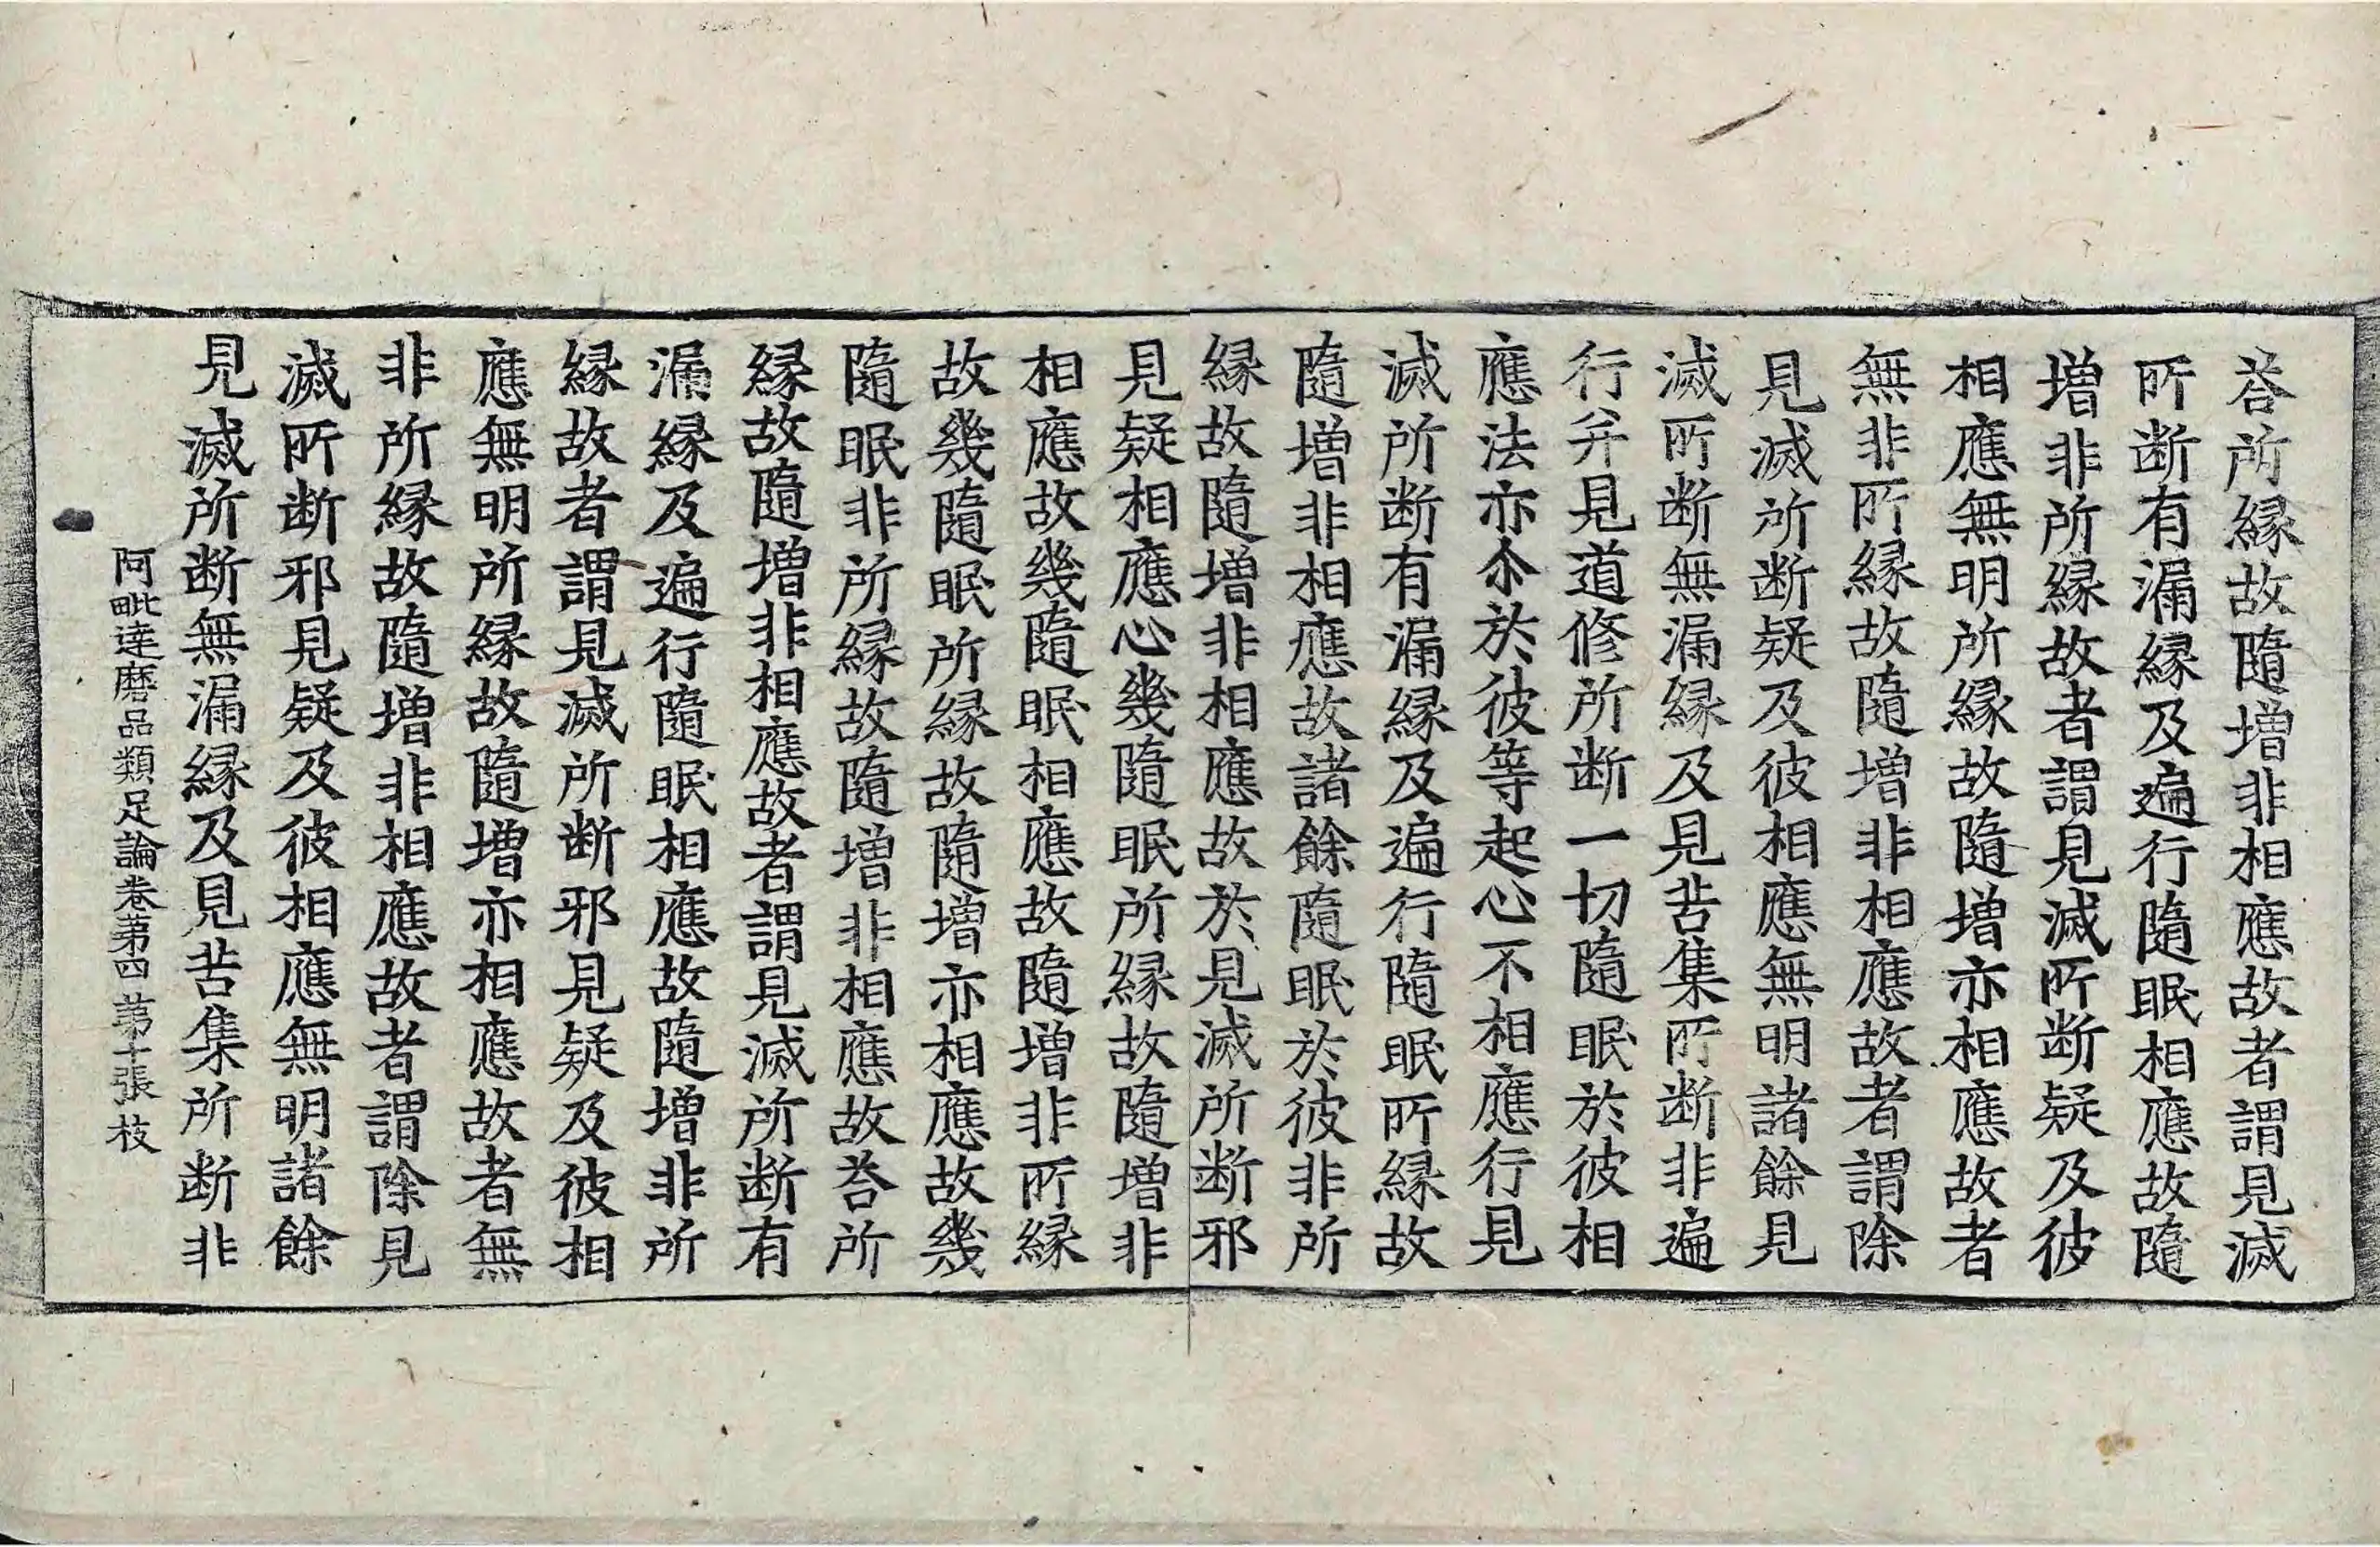 荅所縁故隨増非相應故者謂見滅
所断有漏縁及遍行隨眠相應故隨
増非所縁故者謂見滅所断疑及彼
相應無明所縁故隨増亦相應故者
無非所縁故隨増非相應故者謂除
見滅所断疑及彼相應無明諸餘見
滅所断無漏縁及見苦集所断非遍
行弁見道修所断一切隨眠於彼相
應法亦尒於彼等起心不相應行見
滅所断有漏縁及遍行隨眠所縁故
隨増非相應故諸餘隨眠於彼非所
縁故隨増非相應故於見滅所断邪
見疑相應心幾隨眠所縁故隨増非
相應故幾隨眠相應故隨増非所縁
故幾隨眠所縁故隨増亦相應故幾
隨眠非所縁故隨増非相應故荅所
縁故隨増非相應故者謂見滅所断有
漏縁及遍行隨眠相應故隨増非所
縁故者謂見滅所断邪見疑及彼相
應無明所縁故隨増亦相應故者無
非所縁故隨増非相應故者謂除見
滅所断邪見疑及彼相應無明諸餘
見滅所断無漏縁及見苦集所断非
阿毗達磨品類足論卷苐四 苐十張 枝